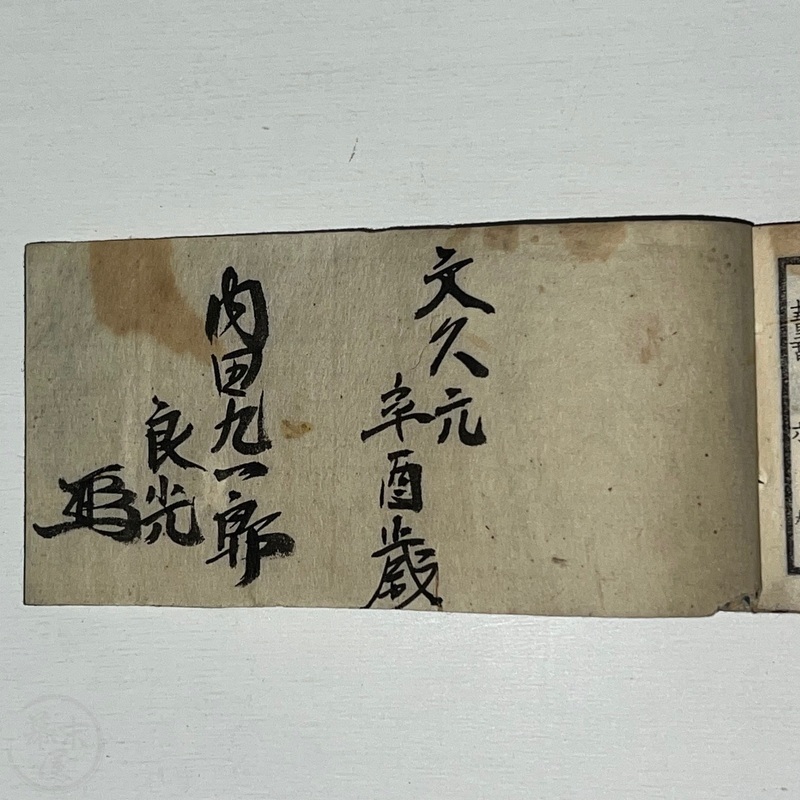 文久元
辛酉歳
内田九一郎
良光